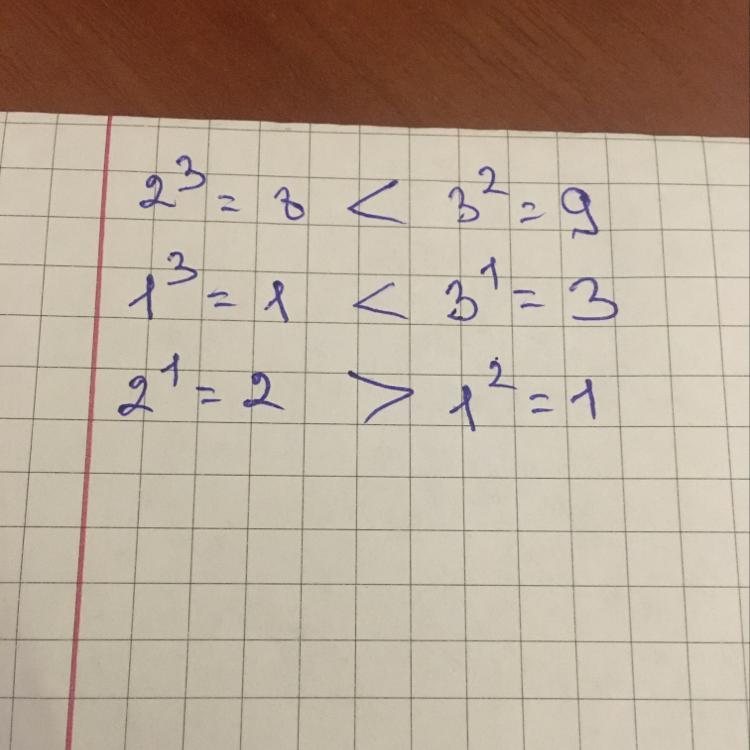 2³ = 8 < 3² = 9
1³ = 1 < 3¹ = 3
2¹ = 2 > 1² = 1